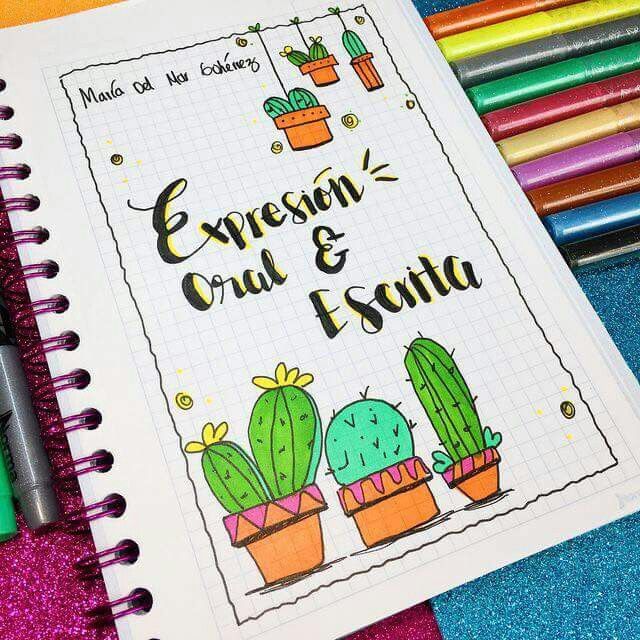 María Del Mar Gohénez
Expresión
Oral &
Escrita